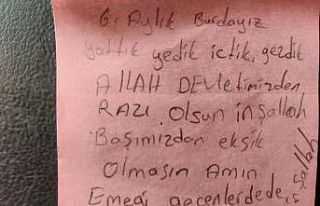 6. Aylık Burdayız
yattık yedik içtik, gezdik
ALLAH DEVletimizden
RAZI Olsun inşallah
Başımızdan eksik
Olmasın Amin
Emeği geçenlerdede,
inşallah